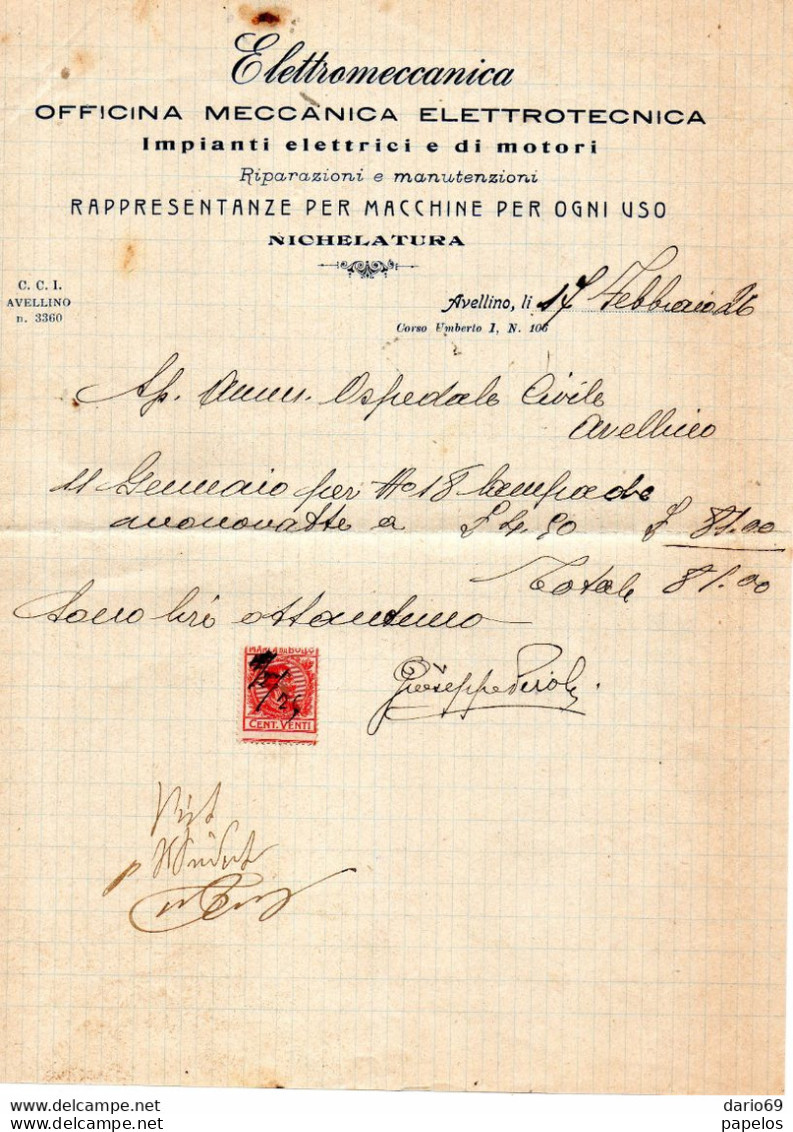 Elettromeccanica
OFFICINA MECCANICA ELETTROTECNICA
Impianti elettrici e di motori
Riparazioni e manutenzioni
RAPPRESENTANZE PER MACCHINE PER OGNI USO
NICHELATURA
C. C. I.
AVELLINO
n. 3360
Avellino, li 17 Febbraio 26
Corso Umberto I, N. 106
Sp. Amm. Ospedale Civile
Avellino
11 Gennaio per No 18 lampade
monowatte a £ 4.50 £ 81.00
Totale 81.00
Sono lire ottantuno
MARCA DA BOLLO
CENT. VENTI
Giuseppe
Visto
dario69
papelos